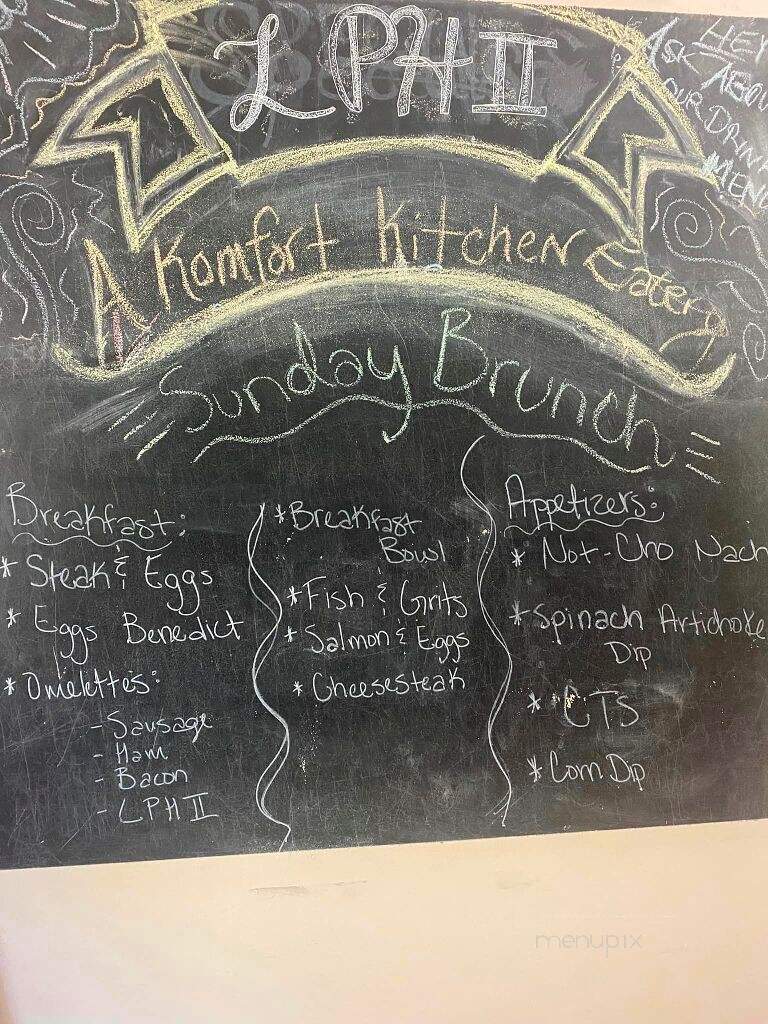 LPH II
HEY
ASK ABOU
OUR DRINK
MENU
A Komfort Kitchen Eatery
Sunday Brunch
Breakfast:
* Steak & Eggs
* Eggs Benedict
* Omelettes:
- Sausage
- Ham
- Bacon
- LPH II
* Breakfast
Bowl
* Fish & Grits
* Salmon & Eggs
* Cheesesteak
Appetizers:
* Not-Cho Nach
* Spinach Artichoke
Dip
* CTS
* Corn Dip
menupix